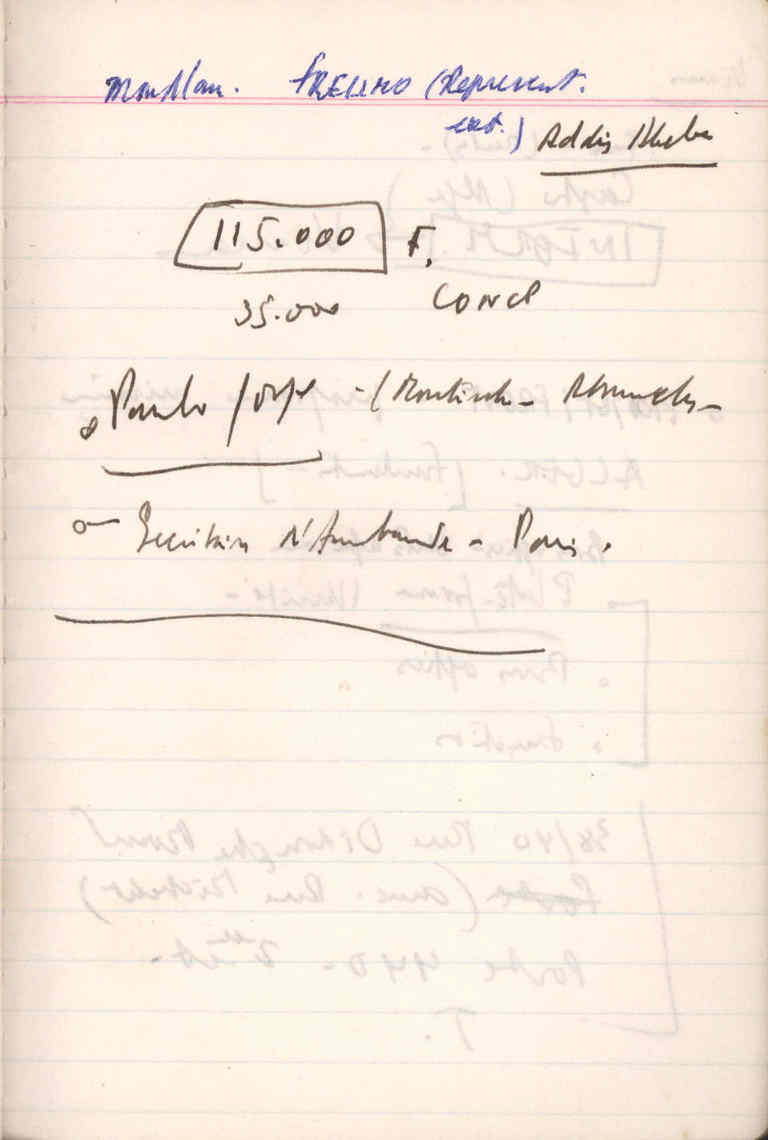 Mondlane. FRELIMO (Represent.
ext.) Addis Abeba
115.000 F.
35.000 CONCP
Paulo Jorge -
o- Secrétaire d'Ambassade - Paris.